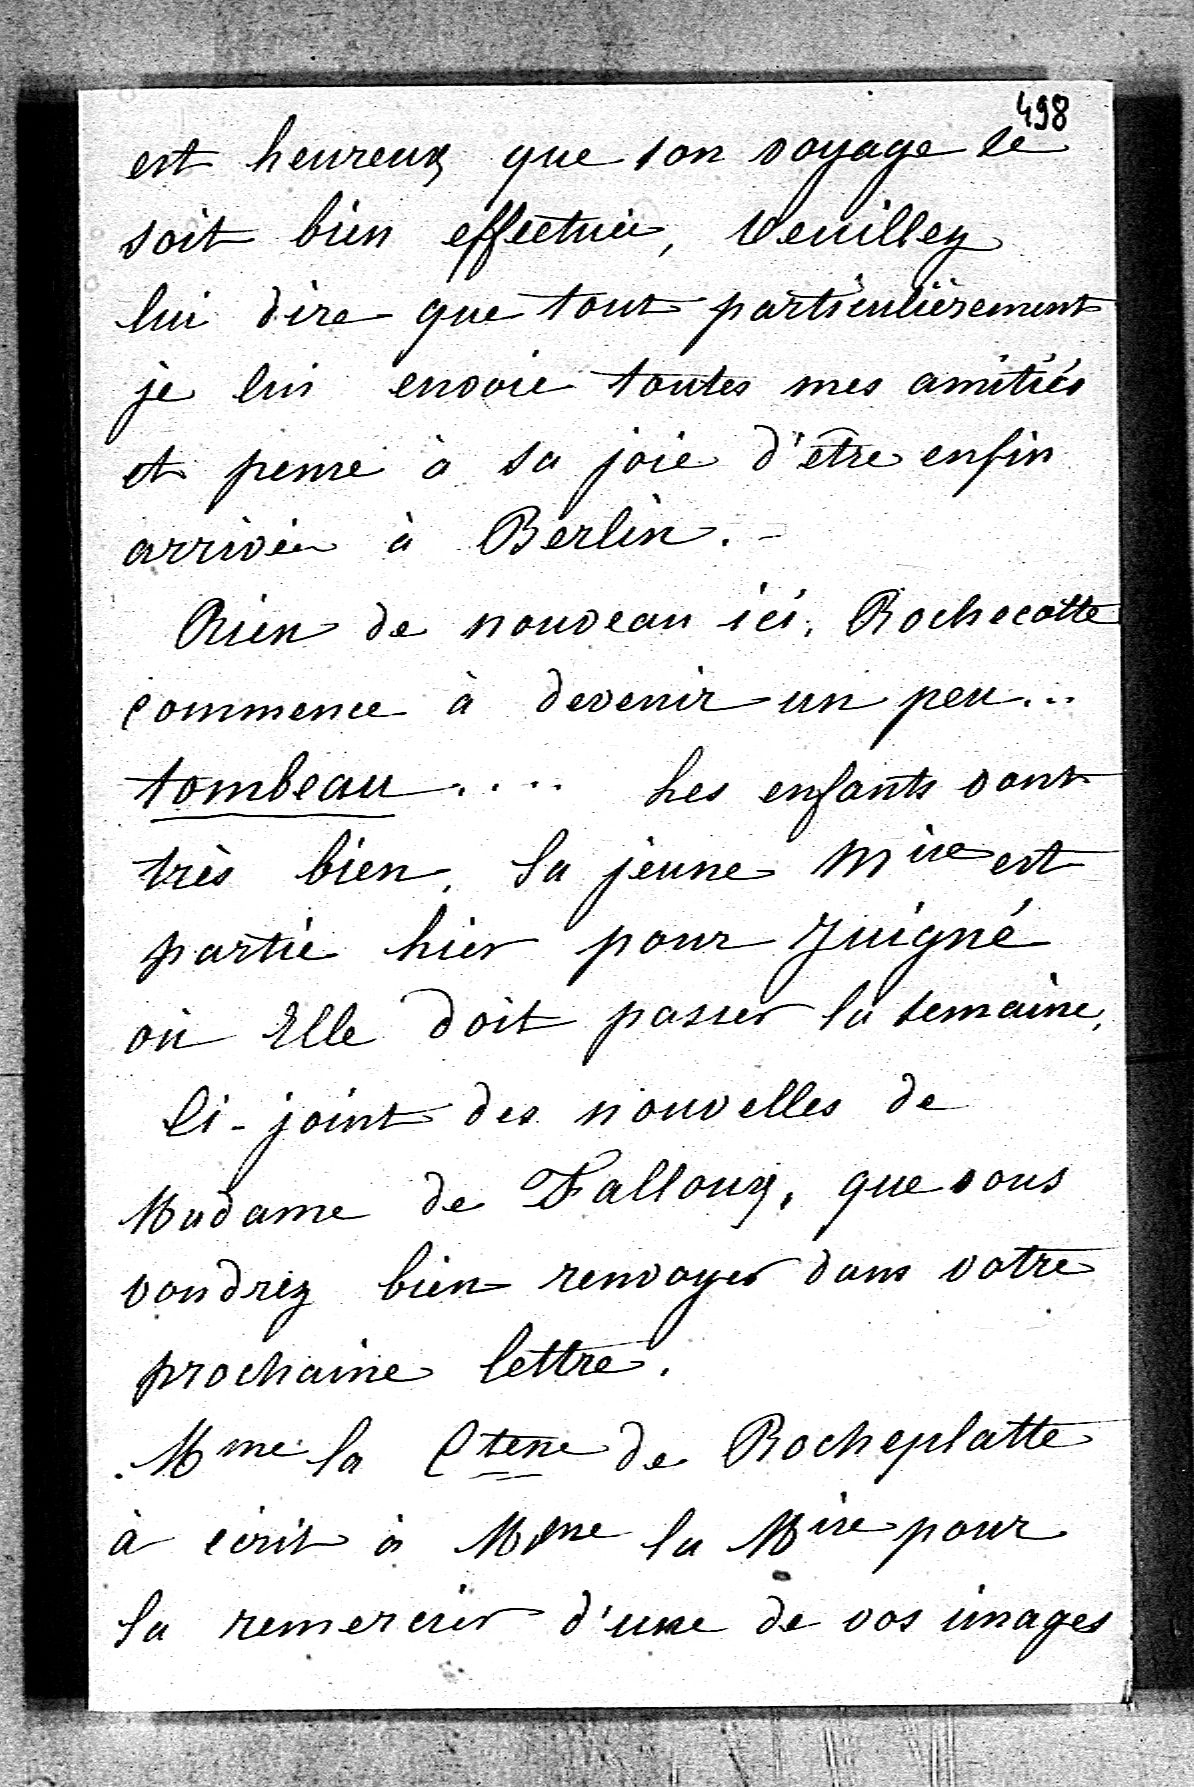 498
est heureux que son voyage se
soit bien effectuée, Veuillez
lui dire que tout particulièrement
je lui envoie toutes mes amitiés
et pense à sa joie d'être enfin
arrivée à Berlin. -
Rien de nouveau ici, Rochecotte
commence à devenir un peu...
tombeau .... Les enfants vont
très bien, la jeune Mise est
partie hier pour Juigné
où Elle doit passer la semaine,
Ci-joint des nouvelles de
Madame de Falloux, que vous
voudrez bien renvoyer dans votre
prochaine lettre.
Mme la Ctesse de Rocheplatte
à écrit à Mme la Mise pour
la remercier d'une de vos images